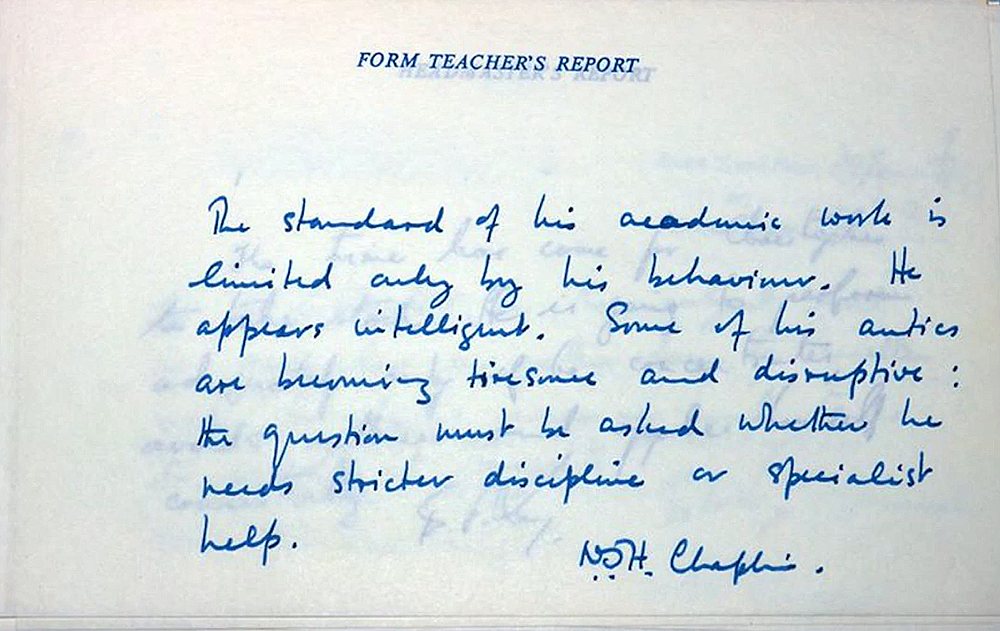 FORM TEACHER'S REPORT
HEADMASTER'S REPORT
The standard of his academic work is
limited only by his behaviour. He
appears intelligent. Some of his antics
are becoming tiresome and disruptive :
the question must be asked whether he
needs stricter discipline or specialist
help.
N.J.H. Chaplin.